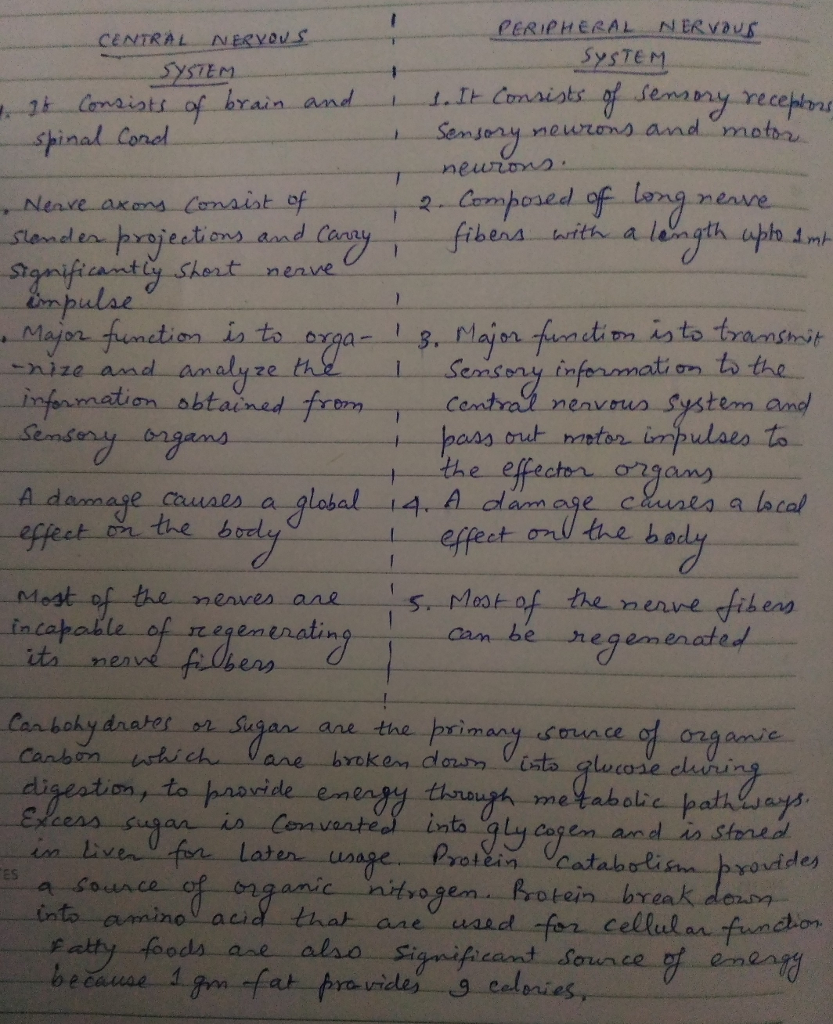 CENTRAL NERVOUS
SYSTEM
1. It Consists of brain and
spinal Cord
. Nerve axons Consist of
slender projections and Carry
significantly short nerve
impulse
. Major function is to orga-
-nize and analyze the
information obtained from
sensory organs
A damage causes a global
effect on the body
Most of the nerves are
incapable of regenerating
its nerve fibers
PERIPHERAL NERVOUS
SYSTEM
1. It Consists of sensory receptors
sensory neurons and motor
neurons.
2. Composed of long nerve
fibers with a length upto 1mt
3. Major function is to transmit
sensory information to the
central nervous system and
pass out motor impulses to
the effector organs
4. A damage causes a local
effect on the body
5. Most of the nerve fibers
can be regenerated
Carbohydrates or Sugar are the primary source of organic
Carbon which are broken down into glucose during
digestion, to provide energy through metabolic pathways.
Excess sugar is Converted into glycogen and is stored
in liver for later usage. Protein Catabolism provides
a source of organic nitrogen. Protein break down
into amino acid that are used for cellular function
Fatty foods are also significant source of energy
because 1 gm fat provides 9 calories.
ES